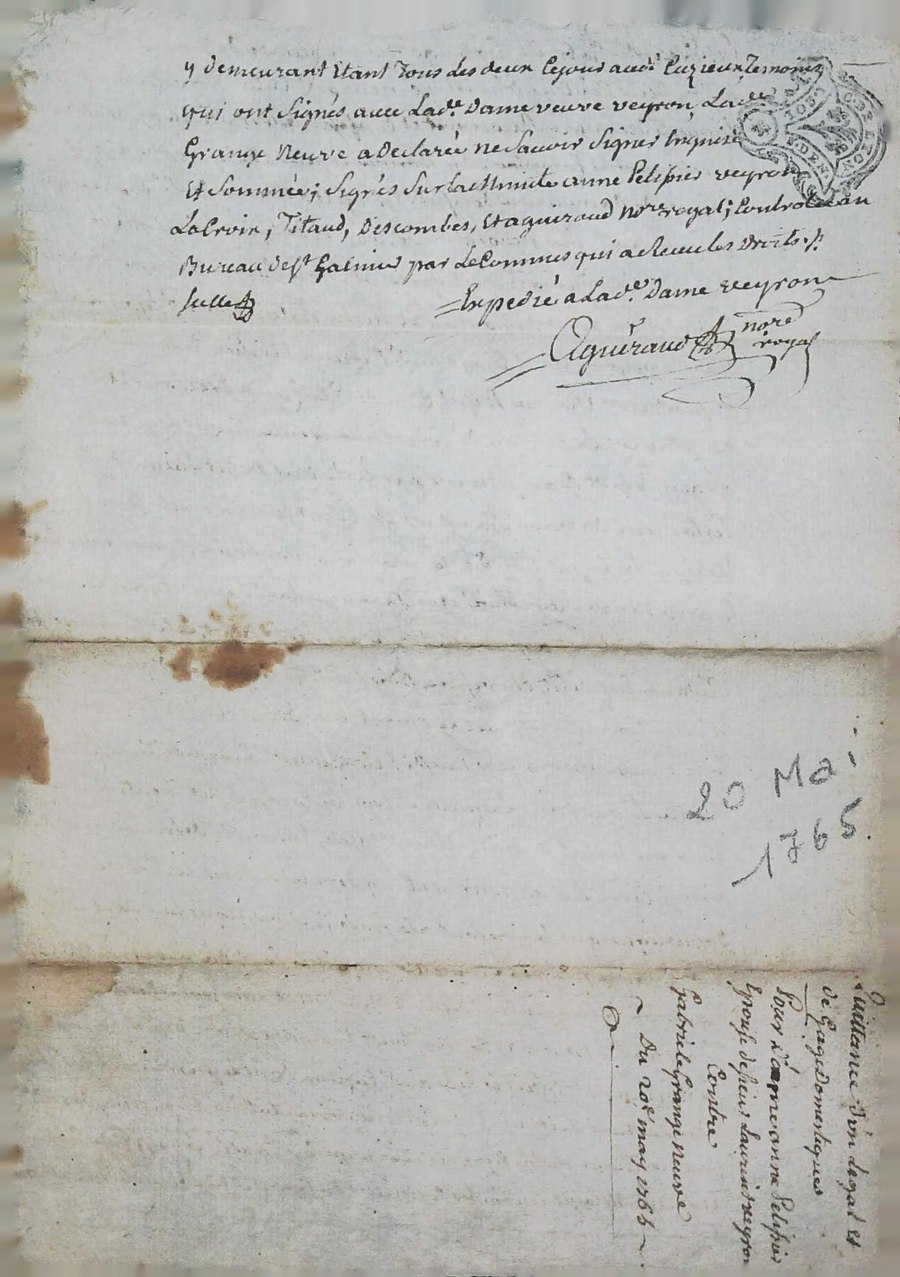 y demeurant Etant Tous les deux Cejourd Cuzieux Temoins
qui ont Signés avec Lad.e Dame veuve veyron, Lad.e
Grange Neuve a Declarée ne Scavoir Signer Enquise
Et Sommée; Signés Sur la Minute anne Pelissier veyron
LaCroix, Titaud, Descombes, Et aguiraud no.re royal; Controllé au
Bureau de S.t Galmier par Le Commis qui a Receu les Droits
Expedié a Lad.e Dame veyron
Aguiraud no.re
royal
20 Mai
1765
Quittance d'un Legat et
de Gage domestiques
Pour D'ame anne Pelissier
Epouse de Sieur Laurent veyron
Contre
Gabrielle Grange neuve
Du 20e may 1765